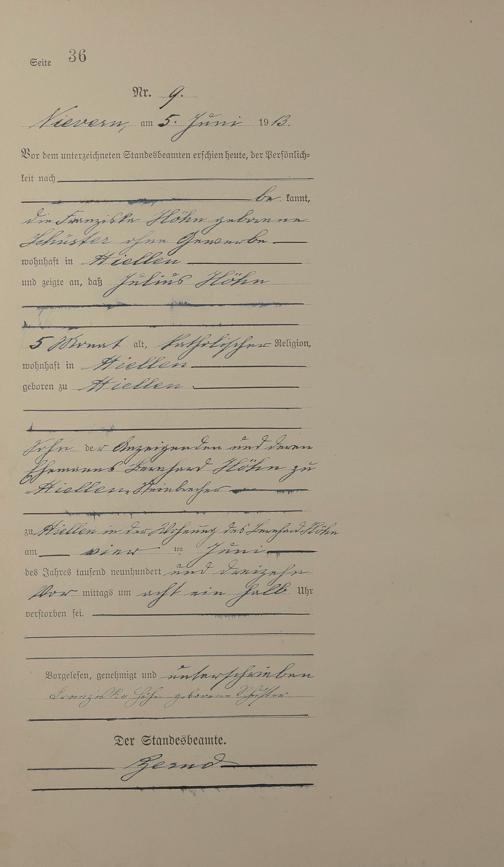 Seite 36
Nr. 9.
Nievern, am 5. Juni 1913.
Vor dem unterzeichneten Standesbeamten erschien heute, der Persönlich-
keit nach
be kannt,
die Franziska Höhn geborene
Schuster ohne Gewerbe
wohnhaft in Miellen
und zeigte an, daß Julius Höhn
5 Monat alt, katholischer Religion,
wohnhaft in Miellen
geboren zu Miellen
Sohn der Anzeigenden und deren
Ehemanns Bernhard Höhn zu
Miellen, Steinbrecher
zu Miellen in der Wohnung des Bernhard Höhn
am vier ten Juni
des Jahres tausend neunhundert und dreizehn
Vor mittags um acht ein halb Uhr
verstorben sei.
Vorgelesen, genehmigt und unterschrieben
Franziska Höhn geborene Schuster
Der Standesbeamte.